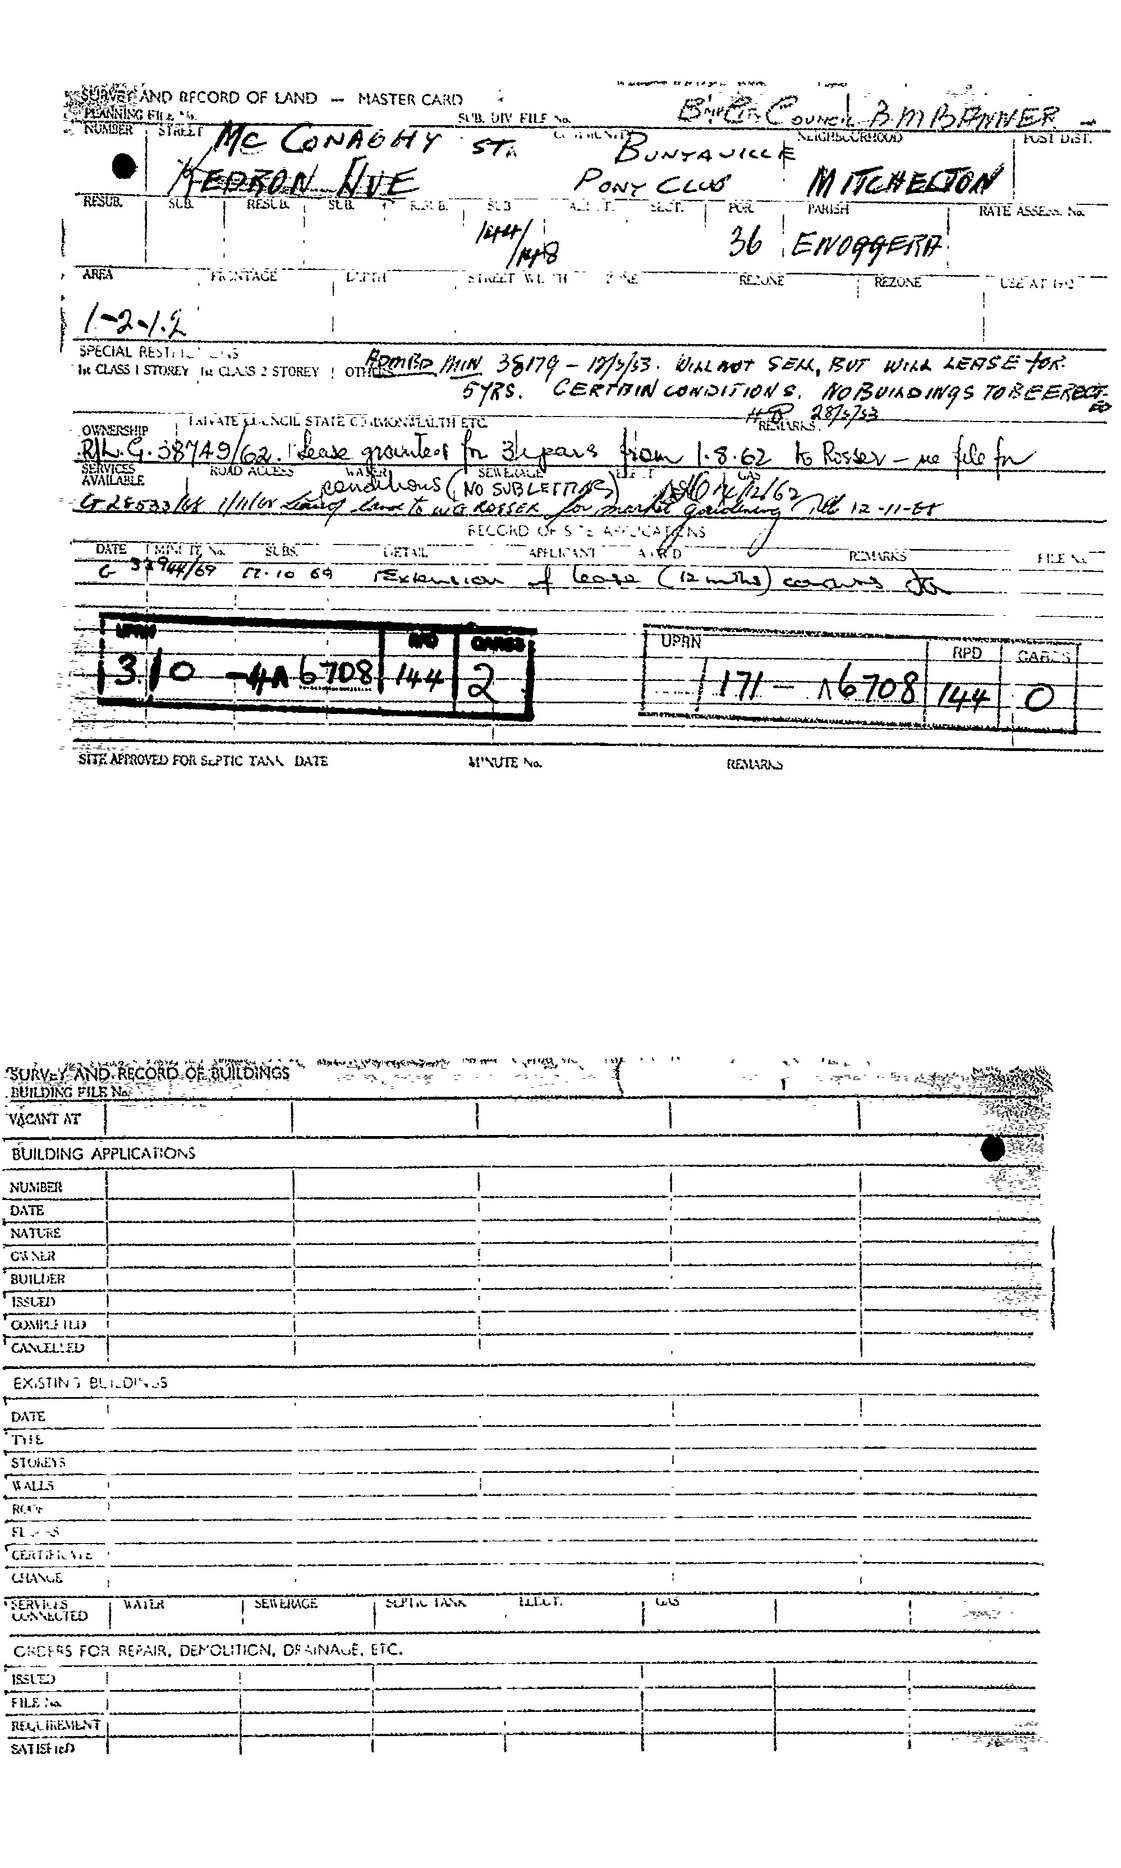 SURVEY AND RECORD OF LAND — MASTER CARD
PLANNING FILE No. SUB. DIV. FILE No. COUNCIL
NUMBER STREET COMMUNITY NEIGHBOURHOOD POST DIST.
MC CONAGHY ST.
KEDRON AVE PONY CLUB MITCHELTON
RESUB. SUB. RESUB. SUB. RESUB. SUB ALLOT. SECT. POR. PARISH RATE ASSESS. No.
144/148 36 ENOGGERA
AREA FRONTAGE DEPTH STREET WIDTH ZONE REZONE REZONE USE AT
1-2-1.2
SPECIAL RESTRICTIONS
1st CLASS 1 STOREY 1st CLASS 2 STOREY OTHER
MIN 38179 - 12/5/53. WILL NOT SELL, BUT WILL LEASE FOR
5 YRS. CERTAIN CONDITIONS. NO BUILDINGS TO BE ERECTED
28/5/53
OWNERSHIP PRIVATE COUNCIL STATE COMMONWEALTH ETC. REMARKS
38749/62. Lease granted for 3 years from 1.8.62 to Rosser - see file for
SERVICES AVAILABLE ROAD ACCESS WATER SEWERAGE ELECT. GAS
conditions (NO SUBLETTING) 12/62
G 28533/68 1/11/68 Lease of land to W.G. ROSSER for market gardening 12-11-68
RECORD OF SITE APPLICATIONS
DATE MINUTE No. SUBS. DETAIL APPLICANT REMARKS FILE No.
G 33944/69 17.10 69 Extension of lease (12 mths)
UPRN RPD CARDS
3/0 -4A 6708 144 2
UPRN RPD CARDS
171 - A6708 144 0
SITE APPROVED FOR SEPTIC TANK DATE MINUTE No. REMARKS
SURVEY AND RECORD OF BUILDINGS
BUILDING FILE No.
VACANT AT
BUILDING APPLICATIONS
NUMBER
DATE
NATURE
OWNER
BUILDER
ISSUED
COMPLETED
CANCELLED
EXISTING BUILDINGS
DATE
TYPE
STOREYS
WALLS
ROOF
FLOORS
CERTIFICATE
CHANGE
SERVICES CONNECTED WATER SEWERAGE SEPTIC TANK ELECT. GAS
ORDERS FOR REPAIR, DEMOLITION, DRAINAGE, ETC.
ISSUED
FILE No.
REQUIREMENT
SATISFIED